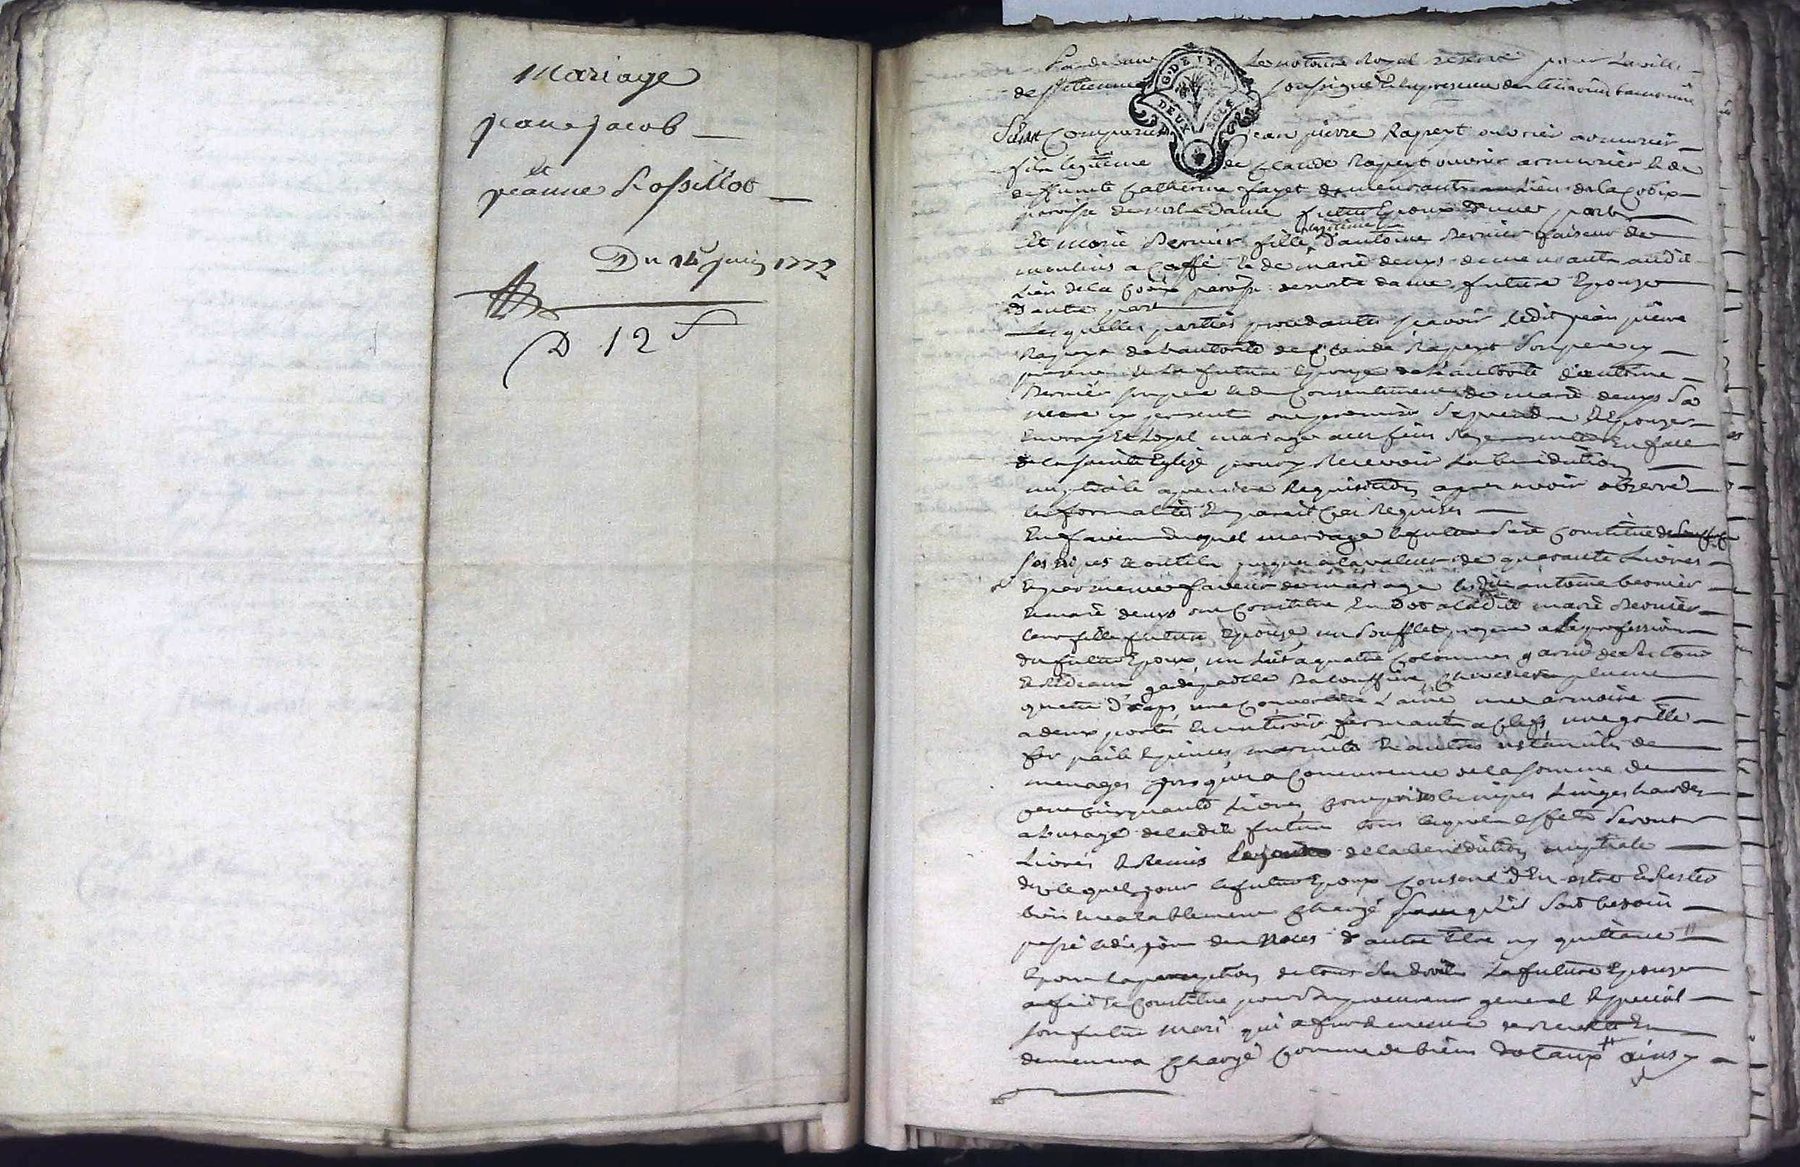 Mariage
jean jacob
et
jeanne
Du 14 juin 1772
D 12 s
G. DE LYON
DEUX SOLS
Pardevant Le notaire Royal reservé pour la ville
de st etienne soussigné Et en presence des temoins
sont Comparus jean pierre Rapeyt ouvrier armurier
fils legitime de Claude Rapeyt ouvrier armurier & de
deffunte Catherine fayet demeurants au lieu de la Croix
paroisse de notre dame futur Epoux d'une part
legitime
Et marie Bernier fille d'antoine Bernier faiseur de
moulins a Caffé & de marie demeurants audit
lieu de la Croix paroisse de notre dame future Epouse
d'autre part
Lesquelles parties procedantes scavoir ledit jean pierre
Rapeyt de l'autorité de Claude Rapeyt son pere icy
present & la future Epouse de l'autorité d'antoine
Bernier son pere & du Consentement de marie sa
mere icy present ont promis se prendre & Epouser
En vray Et loyal mariage En face
de la sainte Eglise pour y Recevoir la benediction
nuptiale a premiere Requisition apres avoir observé
les formalités En pareil Cas Requises
En faveur duquel mariage le futur s'est Constitué
ses nipes & outils jusques a la valeur de quarante Livres
Et par meme faveur de mariage antoine bernier
Et marie ont Constitué En Dot a ladite marie Bernier
leur fille future Epouse un soufflet propre a la profession
du futur Epoux un Lit a quatre Colonnes garni de
& Rideaux garde paille plume
quatre draps une Couverture Laine une armoire
a deux portes & un tiroir fermant a Clefs une grille
fer & autres ustanciles de
menages jusques a Concurrence de la somme de
Cent cinquante Livres Compris les nipes Linges hardes
a l'usage de ladite future tous lesquels effets seront
Livrés & Remis de la benediction nuptiale
duquel jour le futur Epoux Consent d'En estre & Rester
bien & valablement Chargé sans qu'il soit besoin
passé ledit jour des Noces d'autre titre ny quittance
Et pour la perception de tous ses droits La future Epouse
a fait & Constitué pour son procureur general & special
son futur mari qui a fur et mesure
demeurera Chargé Comme de biens dotaux ainsy